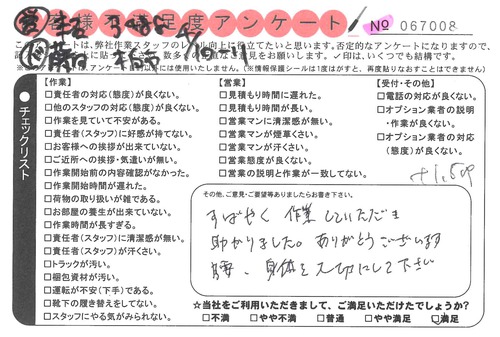 お客様不満足度アンケート
No 067008
このアンケートは、弊社作業スタッフのレベル向上に役立てたいと思います。否定的なアンケートになりますので、
印は、いくつでも結構です。
【作業】
□責任者の対応(態度)が良くない。
□他のスタッフの対応(態度)が良くない。
□作業を見ていて不安がある。
□責任者(スタッフ)に好感が持てない。
□お客様への挨拶が出来ていない。
□ご近所への挨拶・気遣いが無い。
□作業開始前の内容確認がなかった。
□作業開始時間が遅れた。
□荷物の取り扱いが雑である。
□お部屋の養生が出来ていない。
□作業時間が長すぎる。
□責任者(スタッフ)に清潔感が無い。
□責任者(スタッフ)が汗くさい。
□トラックが汚い。
□梱包資材が汚い。
□運転が不安(下手)である。
□靴下の履き替えをしてない。
□スタッフにやる気がみられない。
【営業】
□見積もり時間に遅れた。
□見積もり時間が長い。
□営業マンに清潔感が無い。
□営業マンが煙草くさい。
□営業マンが汗くさい。
□営業態度が良くない。
□営業の説明と作業が一致してない。
【受付・その他】
□電話の対応が良くない。
□オプション業者の説明
・作業が良くない。
□オプション業者の対応
(態度)が良くない。
チェックリスト
その他、ご意見・ご要望等ありましたらお書き下さい。
すばやく 作業していただき
助かりました。ありがとうございます
腰、身体を大切にして下さい
☆当社をご利用いただきまして、ご満足いただけたでしょうか?
□不満 □やや不満 □普通 □やや満足 □満足